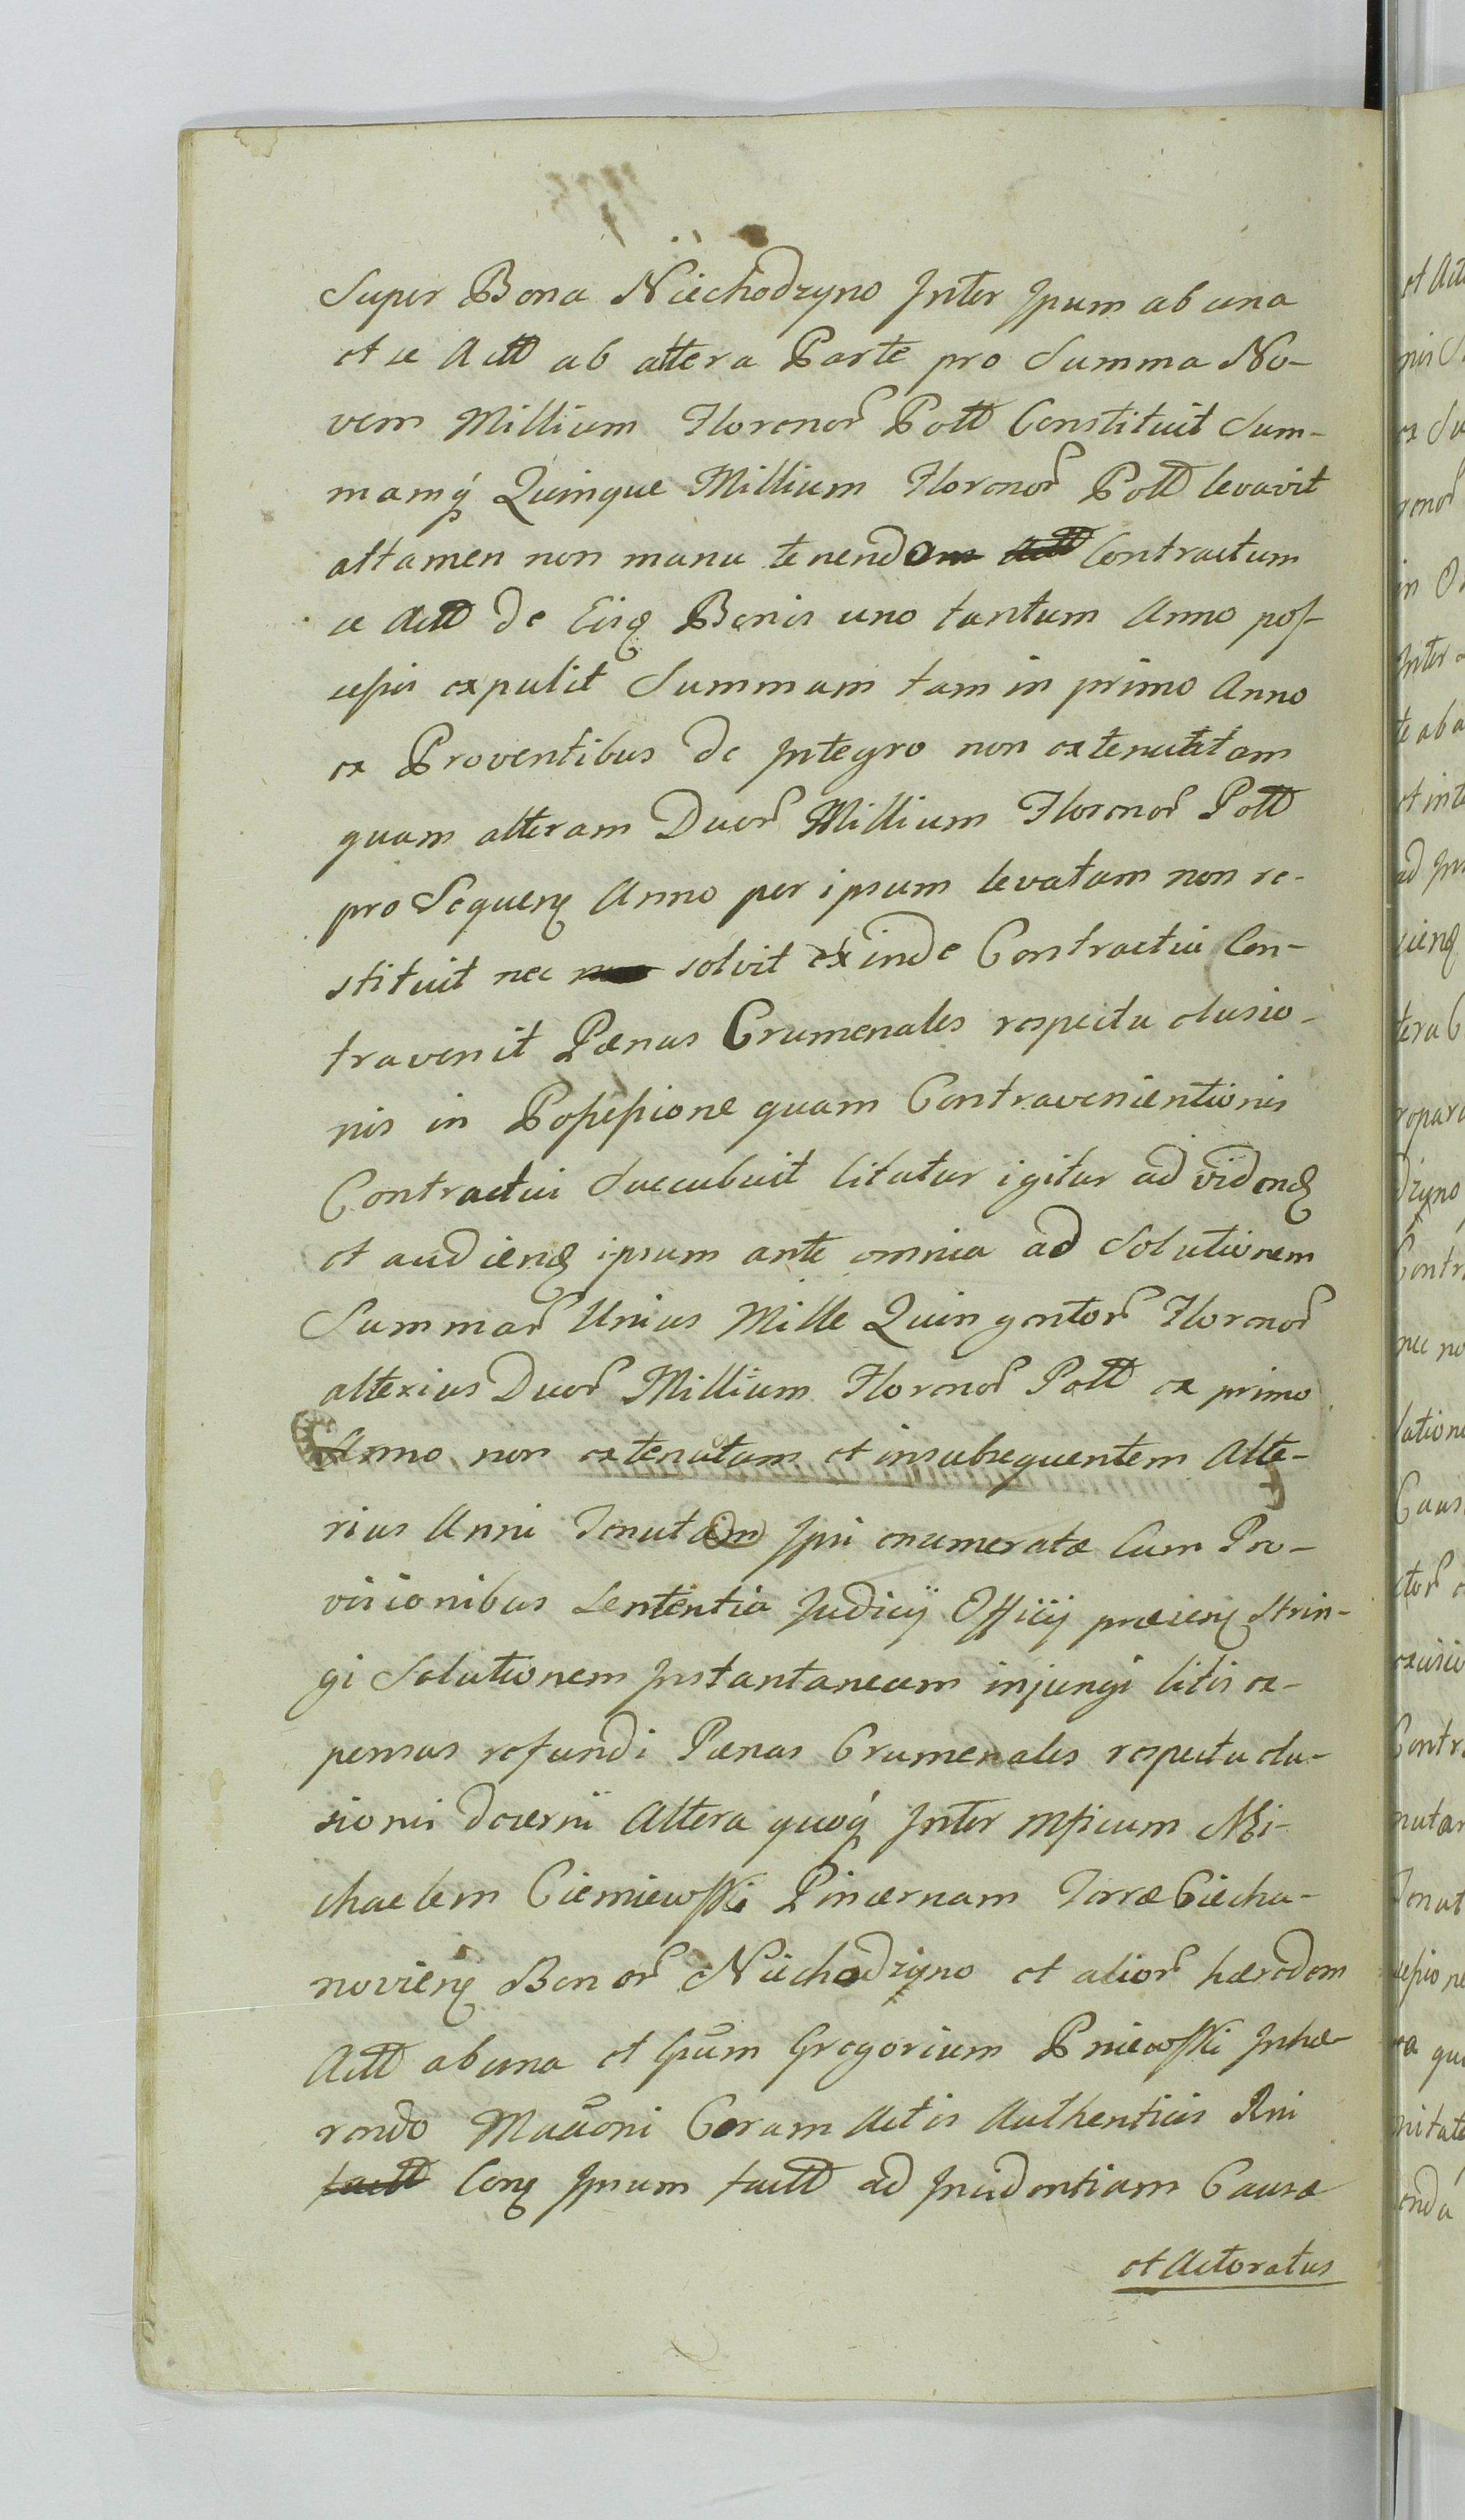 Super Bona Niechodzyno Inter Ipsum ab una
et a Actt ab altera Parte pro Summa No-
vem Millium Florenor Poltt Constituit Sum-
mamq́ Quinque Millium Florenor Poltt levavit
attamen non manu tenendo Contractum
a Actt de Eisq Bonis uno tantum Anno pos-
sessis expulit Summam tam in primo Anno
ex Proventibus de Integro non extenutitam
quam alteram Duor Millium Florenor Poltt
pro Sequenq Anno per ipsum levatam non re-
stituit nec solvit exinde Contractui Con-
travenit Pænas Crumenales respectu elusio-
nis in Possessione quam Contravenientionis
Contractui Succubuit Citatur igitur ad vidend
et audiend ipsum ante omnia ad Solutionem
Summar Unius Mille Quingentor Florenor
alterius Duor Millium Florenor Poltt ex primo
Anno non extenutam et in subsequentem Alte-
rius Anni Tenutam Ipsi enumeratæ Cum Pro-
visionibus Sententia Judicij Officij præsenq Strin-
gi Solutionem Instantaneam injungi litis ex-
pensas refundi Pænas Crumenales respectu elu-
sionis decerni Altera quoq́ Inter Mficum Mi-
chaelem Ciemiewski Pincernam Terræ Ciecha-
novienq Bonor Niechodzyno et alior hæredem
Actt ab una et Gsum Gregorium Pniewski Inhæ-
rendo Maoni Coram Actis Authenticis Rni
Conq Ipsum factt ad Incidentiam Causæ
et Actoratus